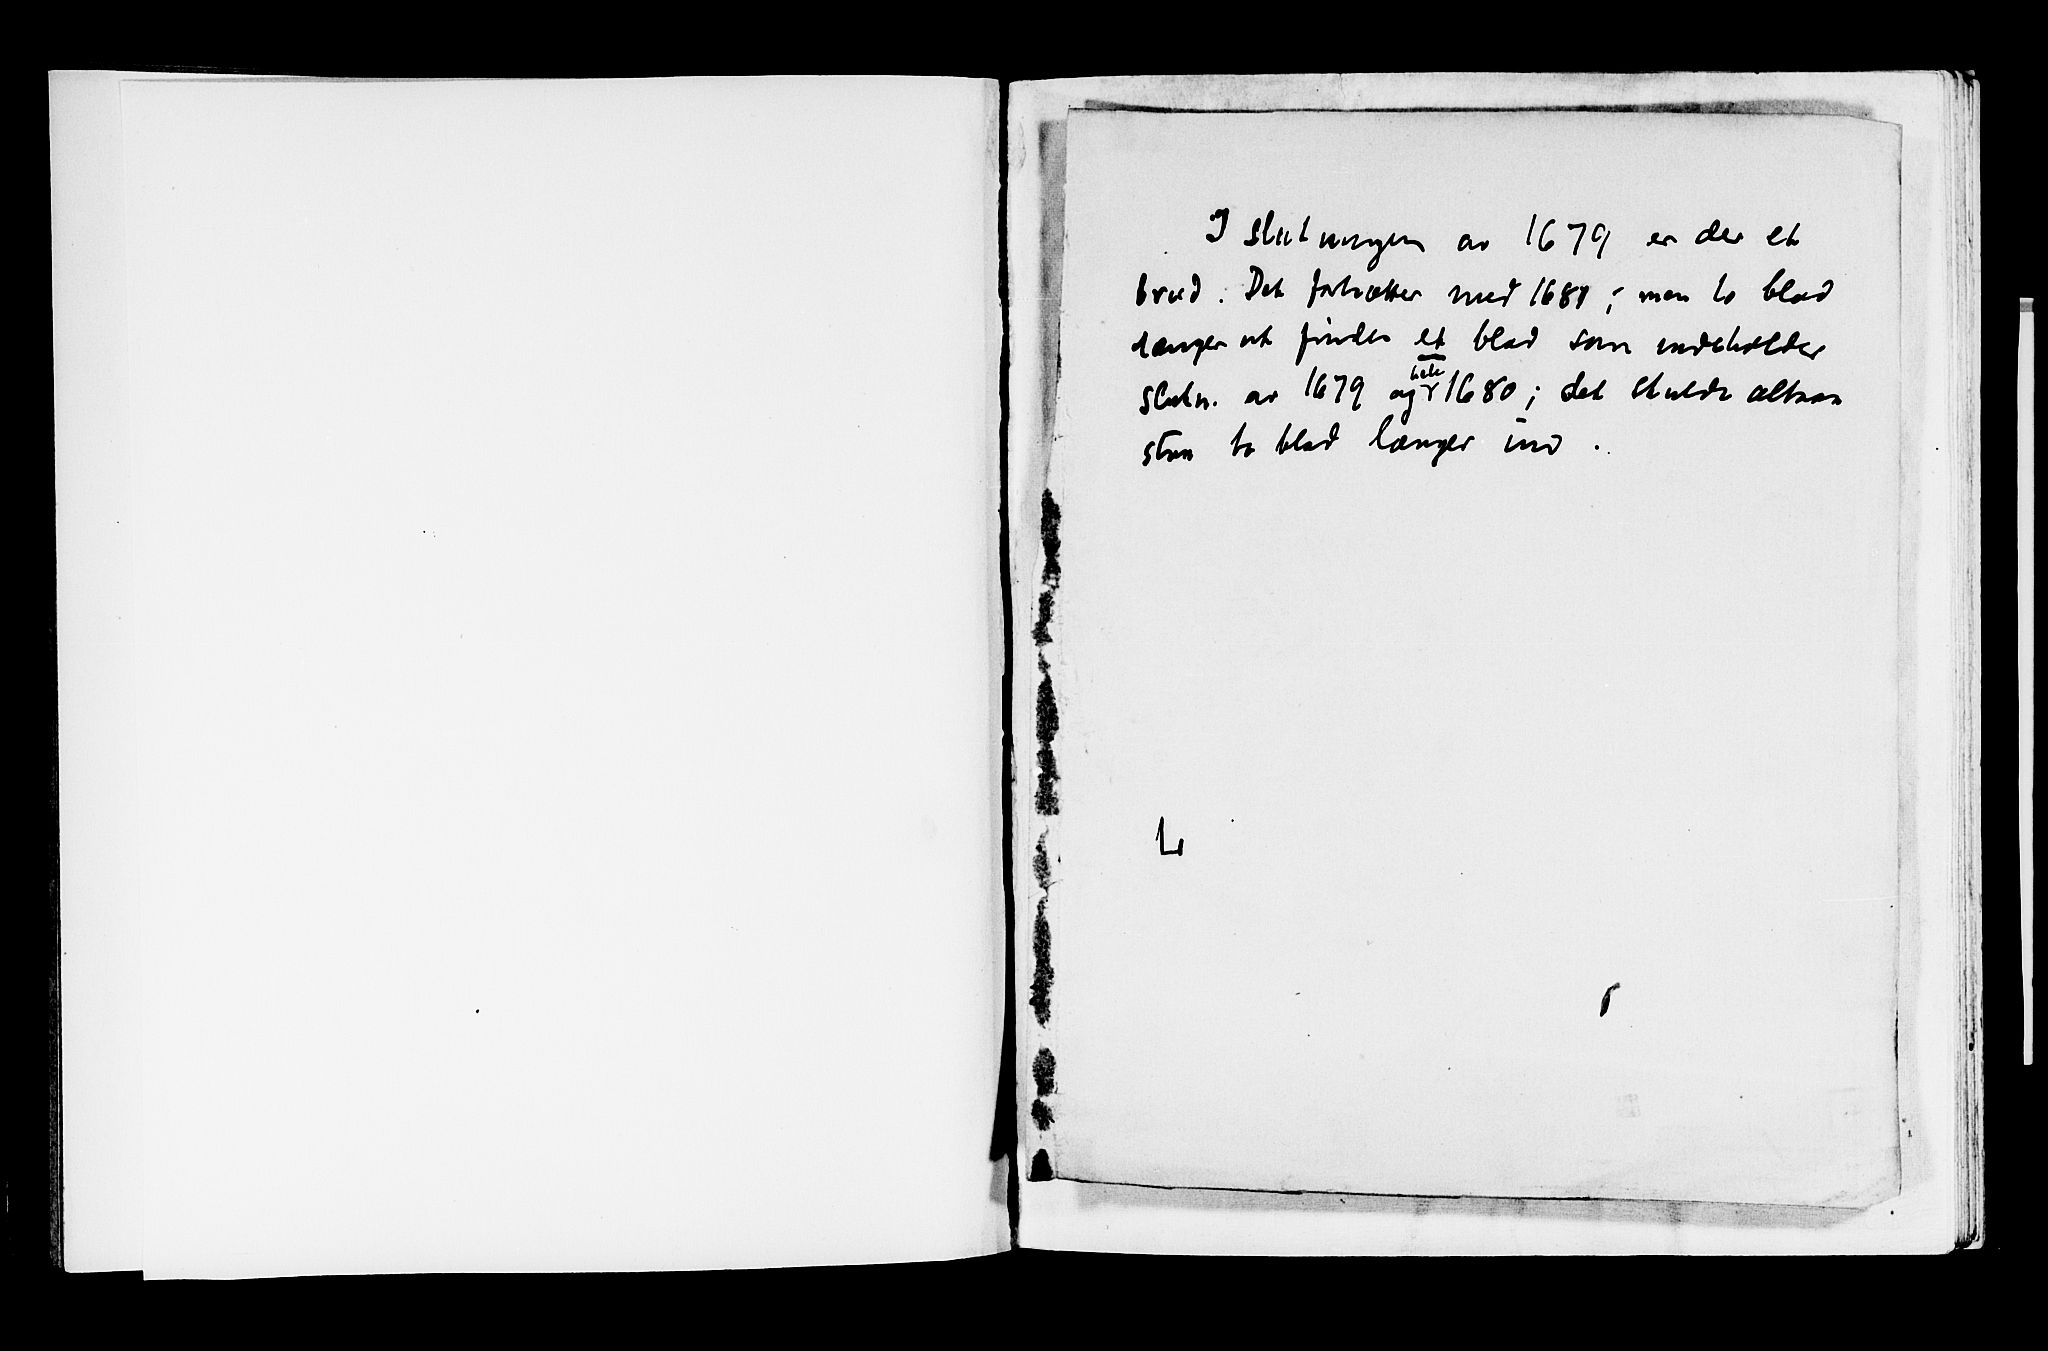 I slutningen av 1679 er der et
brud. Det fortsætter med 1681; men to blad
længer ut findes et blad som indeholder
slutn. av 1679 og hele 1680; det skulde altsaa
staa to blad længer ind.